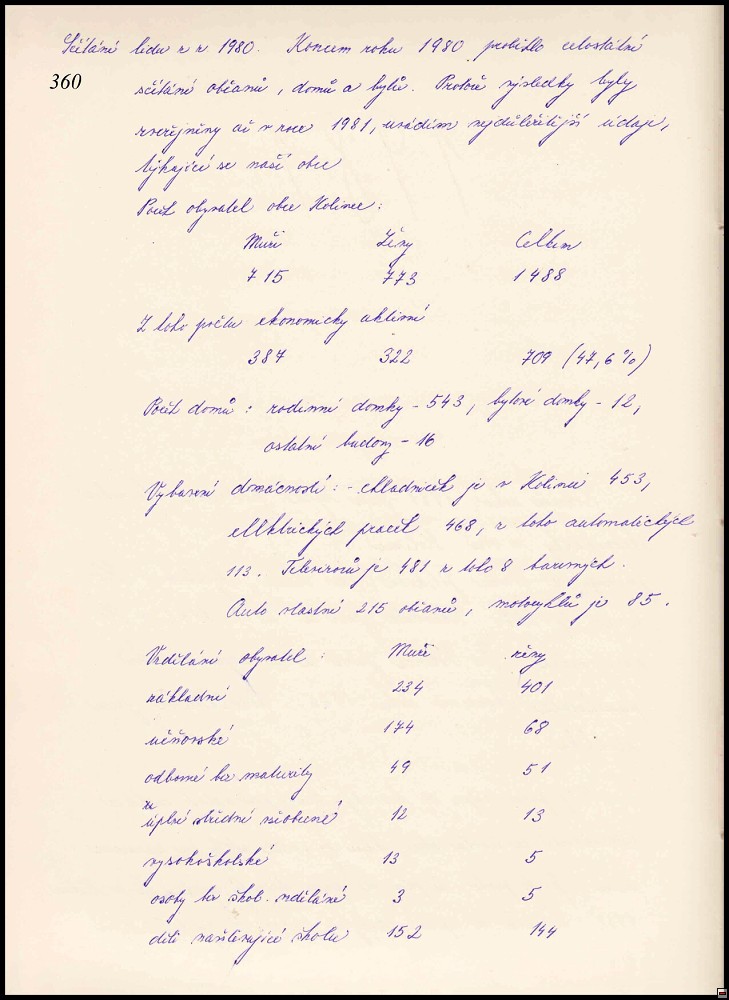 Sčítání lidu z r. 1980. Koncem roku 1980 proběhlo celostátní
360
sčítání občanů, domů a bytů. Protože výsledky byly
zveřejněny až v roce 1981, uvádím nejdůležitější údaje,
týkající se naší obce
Počet obyvatel obce Kolinec:
Muži Ženy Celkem
715 773 1488
Z toho počtu ekonomicky aktivní
387 322 709 (47,6 %)
Počet domů: rodinné domky - 543, bytové domky - 12,
ostatní budovy - 16
Vybavení domácností: - chladniček je v Kolinci 453,
elektrických praček 468, z toho automatických
113. Televizorů je 481 z toho 8 barevných.
Auto vlastní 215 občanů, motocyklů je 85.
Vzdělání obyvatel: Muži ženy
základní 234 401
učňovské 174 68
odborné bez maturity 49 51
úplné střední všeobecné 12 13
vysokoškolské 13 5
osoby bez škol. vzdělání 3 5
děti navštěvující školu 152 144